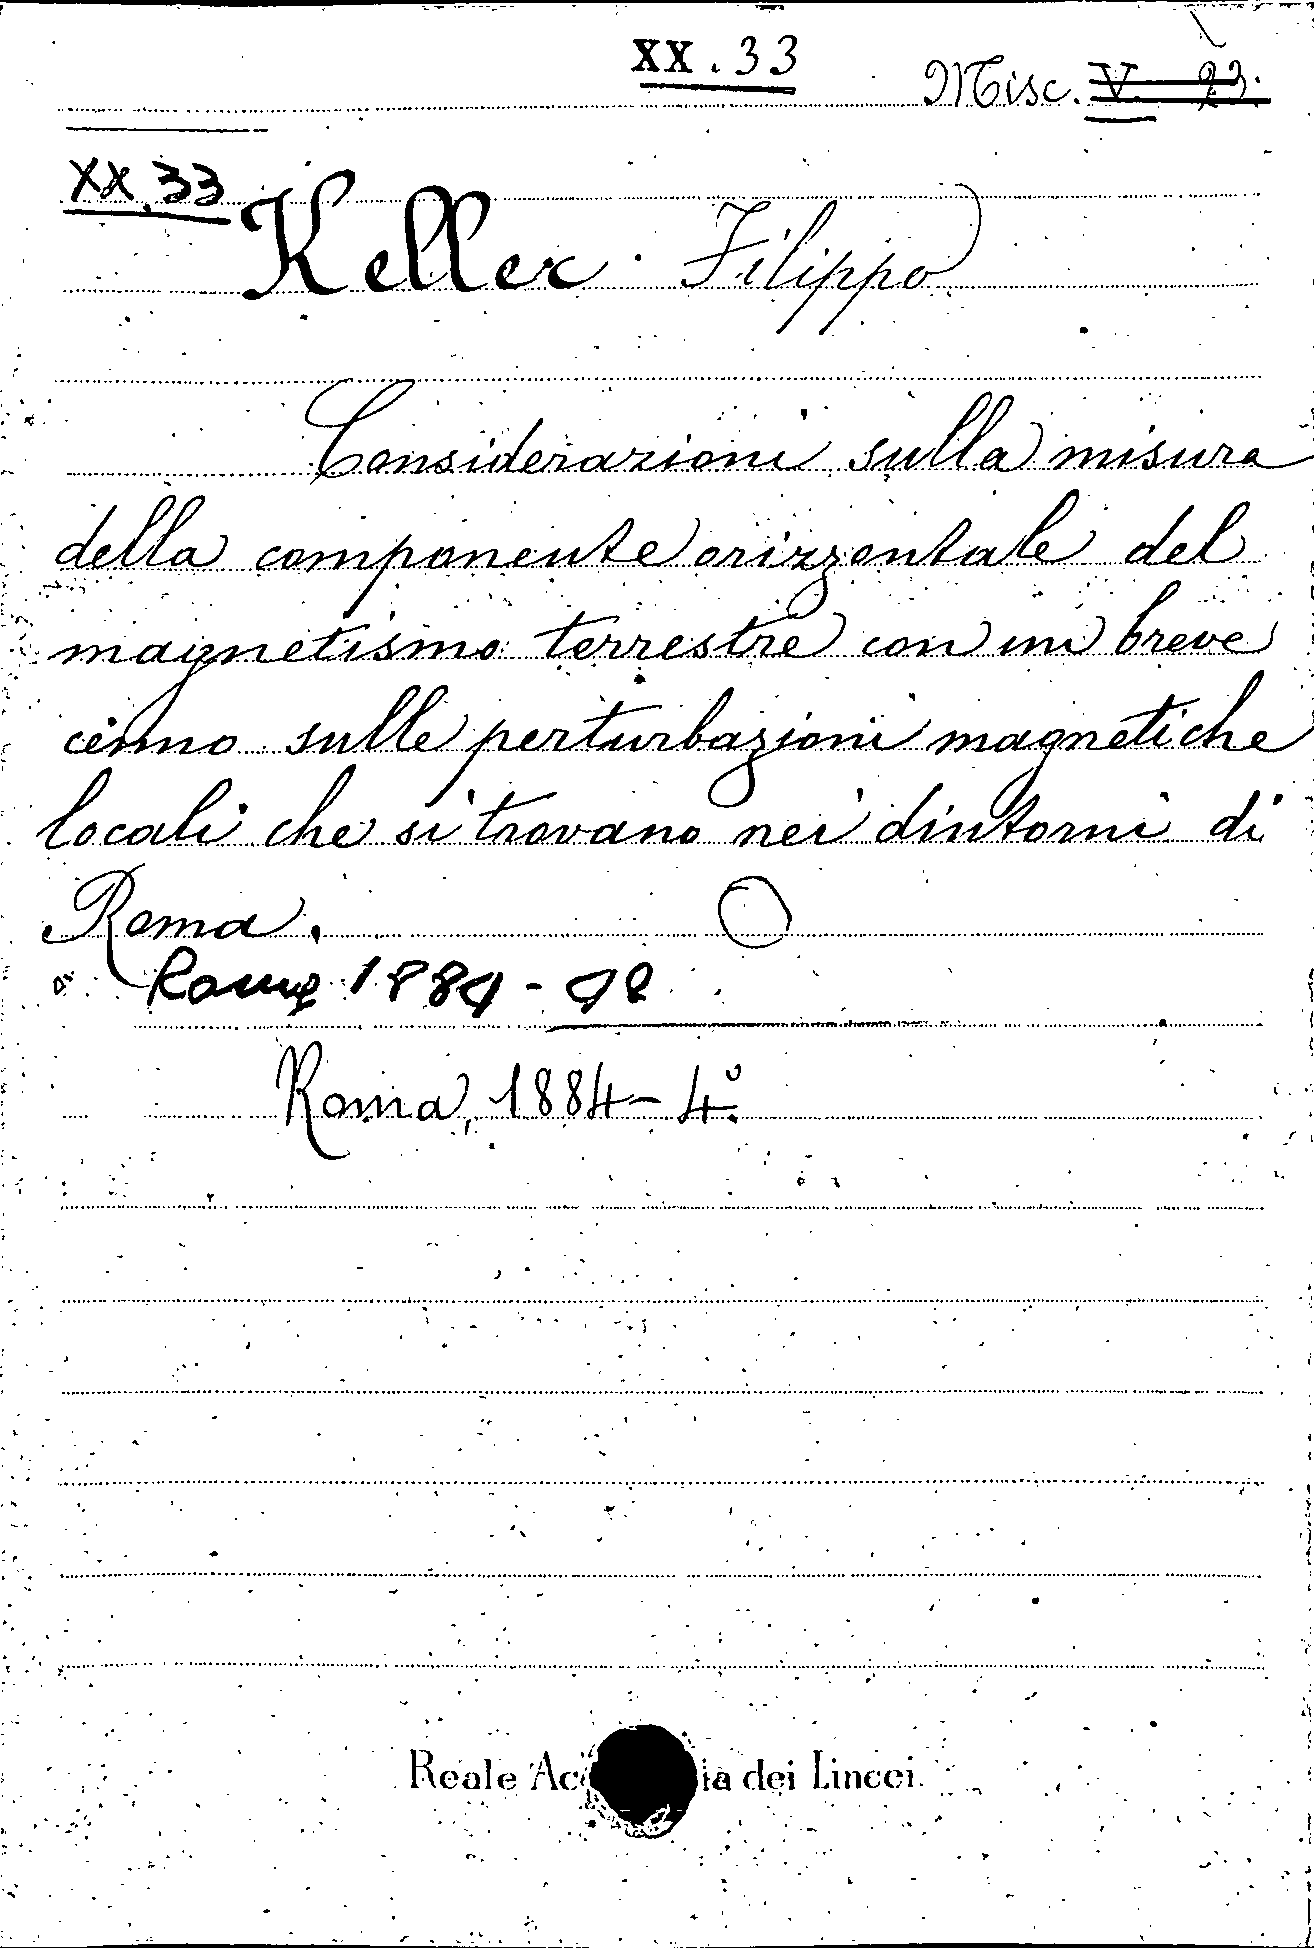 XX.33
Misc. V. 23.
XX.33
Keller Filippo
Considerazioni sulla misura
della componente orizzontale del
magnetismo terrestre con un breve
cenno sulle perturbazioni magnetiche
locali che si trovano nei dintorni di
Roma.
Roma 1884 - 4º
Roma, 1884 - 4º
Reale Ac ia dei Lincei